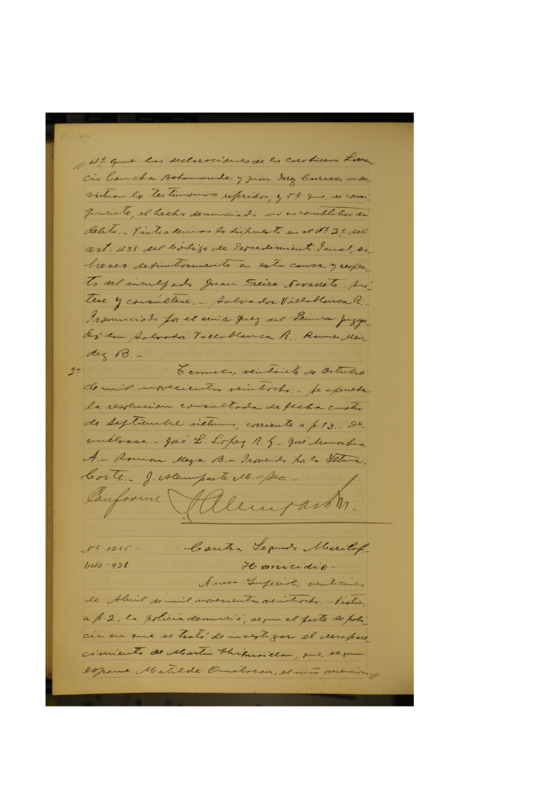 4º que las declaraciones de los carabineros
cio Concha Bahamonde y Juan Carrasco
virtuan los testimonios referidos, y 5º que, es conse
quente, el hecho denunciado no es constitutivo de
delito. Visto además lo dispuesto en el Nº 2º del
art. 438 del Código de Procedimiento Penal, so
breseese definitivamente en esta causa y respec
to del inculpado Juan Freire Navarrete. Anó
tese y consúltese. - Salvador Villablanca R. -
Pronunciado por el señor Juez del Primer Juzga
do, don Salvador Villablanca R. Ramón
dez B. -
2º Temuco, veintisiete de Octubre
de mil novecientos veintiocho. - Se aprueba
la resolución consultada de fecha cuatro
de Septiembre último, corriente a f. 13. De
vuélvase. - José L. López R. G. - José
A. - Roman Meza B. - Proveído por la Iltma.
Corte. - J. Alemparte M. - Sec. -
Conforme J Alemparte M.
Nº 1255. - Contra Segundo
Homicidio. -
Nueva Imperial,
de Abril de mil novecientos veintiocho. - Vistos,
a f. 2, la policía denunció, según el parte de poli
cía en que se trató de investigar el desapare
cimiento de Martín que, según
expone Matilde el niño